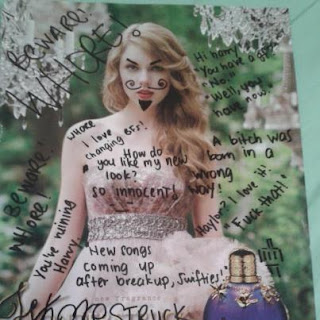 BEWARE!
WHORE!
Hi
You have a
"No."
"Well, you
have now."
WHORE
I love bfs!
changing
How do
you like my new
look?
So innocent!
A bitch was
born in a
wrong
way!
BEWARE!
WHORE!
Haylor? I love it!
"Fuck that!"
You're ruining
Harry.
New songs
coming up
after breakup, Swifties!
new fragrance
STRUCK